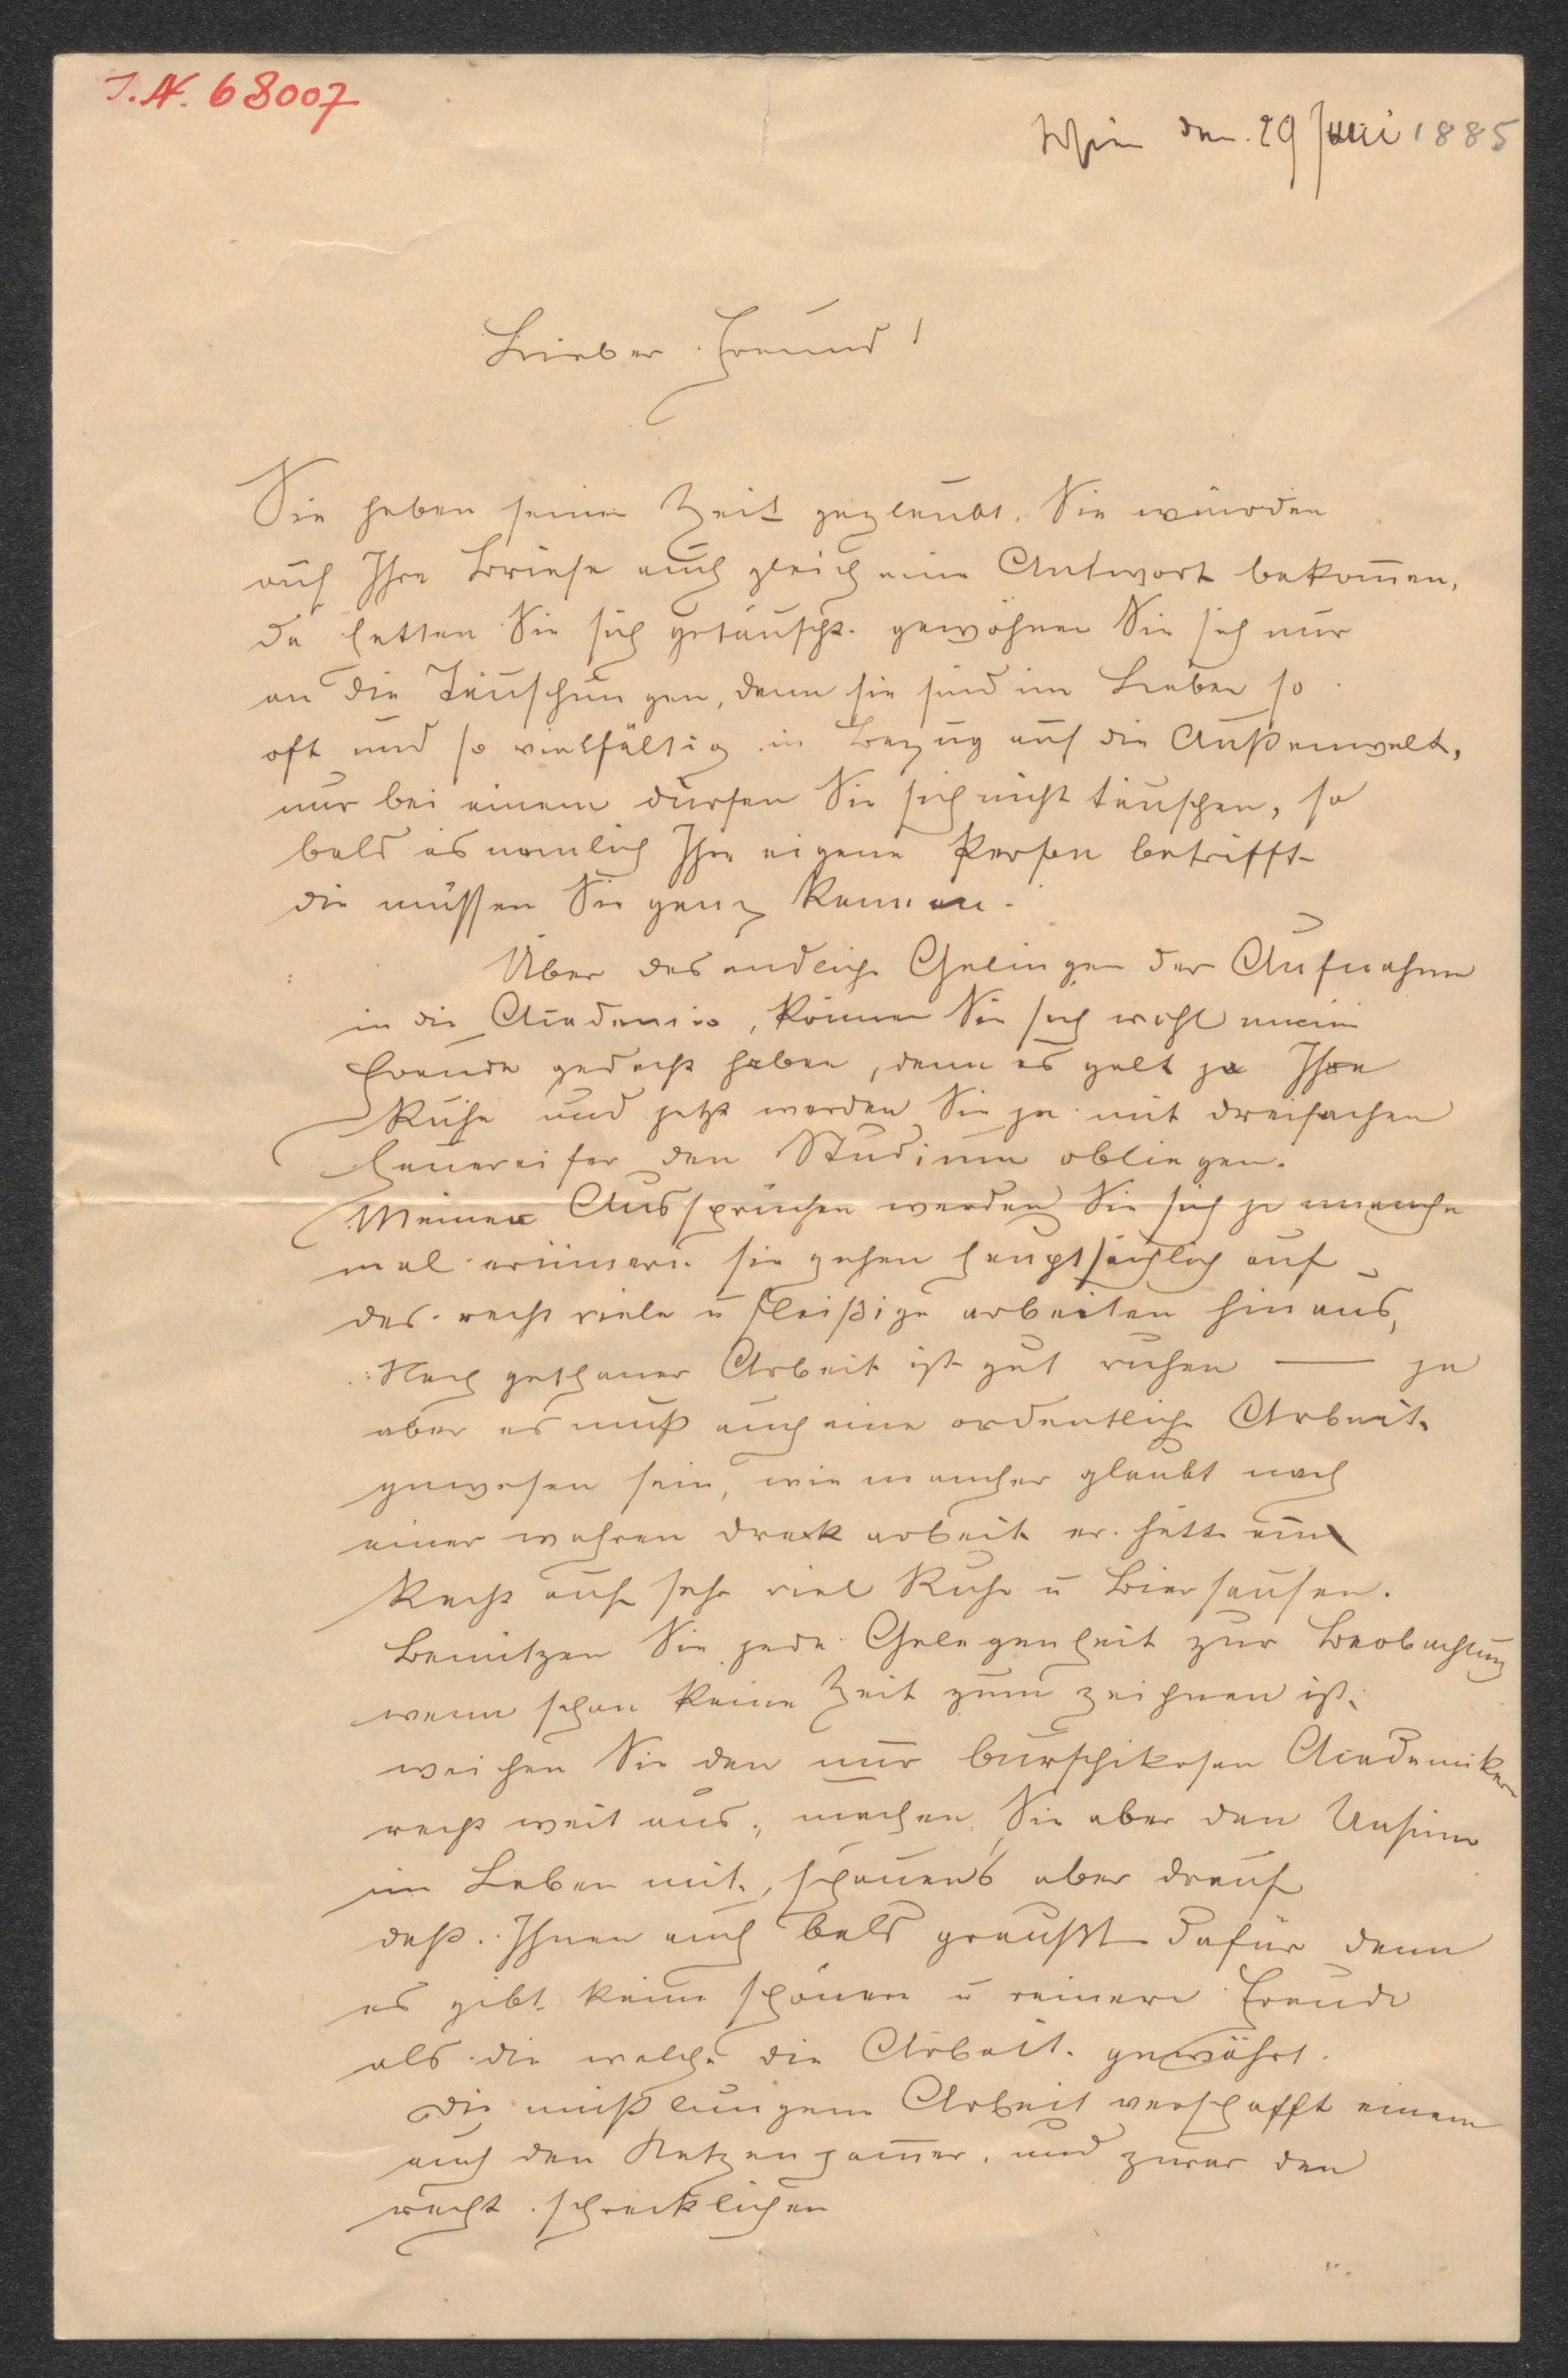 I.N. 68007
Wien den 29 Juni 1885
Lieber Freund!
Sie haben seiner Zeit geglaubt. Sie würden
auf Ihre Briefe auch gleich eine Antwort bekom̅en,
da hatten Sie sich getäuscht. gewöhnen Sie sich nur
an die Täuschungen, denn sie sind im Leben so
oft und so vielfältig in Bezug auf die Außenwelt,
nur bei einem dürfen Sie sich nicht täuschen, so
bald es nämlich Ihre eigene Person betrifft
die müssen Sie ganz kennen.
Über das endliche Gelingen der Aufnahme
in die Academie, können Sie sich wohl meine
Freude gedacht haben, denn es galt ja Ihre
Ruhe und jetzt werden Sie ja mit dreifachen
Feuereifer den Studium obliegen.
Meinen Aussprüchen werden Sie sich ja manche
mal erinnern. sie gehen hauptsächlich auf
das recht viele u fleißige arbeiten hinaus,
Nach gethaner Arbeit ist gut ruhen — ja
aber es muß auch eine ordentliche Arbeit
gewesen sein, wie mancher glaubt nach
einer wahren Dreckarbeit er hätte ein
Recht auf sehr viel Ruhe u Biersaufen.
Benützen Sie jede Gelegenheit zur Beobachtung
wenn schon keine Zeit zum zeichnen ist.
weichen Sie den nur burschikosen Academiker
recht weit aus, machen Sie aber den Unsinn
im Leben mit, schauen's aber drauf
daß Ihnen auch bald graußt dafür denn
es gibt keine schönere u reinere Freude
als die welche die Arbeit gewährt.
die mißlungene Arbeit verschafft einem
auch den Katzenjam̅er, und zwar den
recht schrecklichen